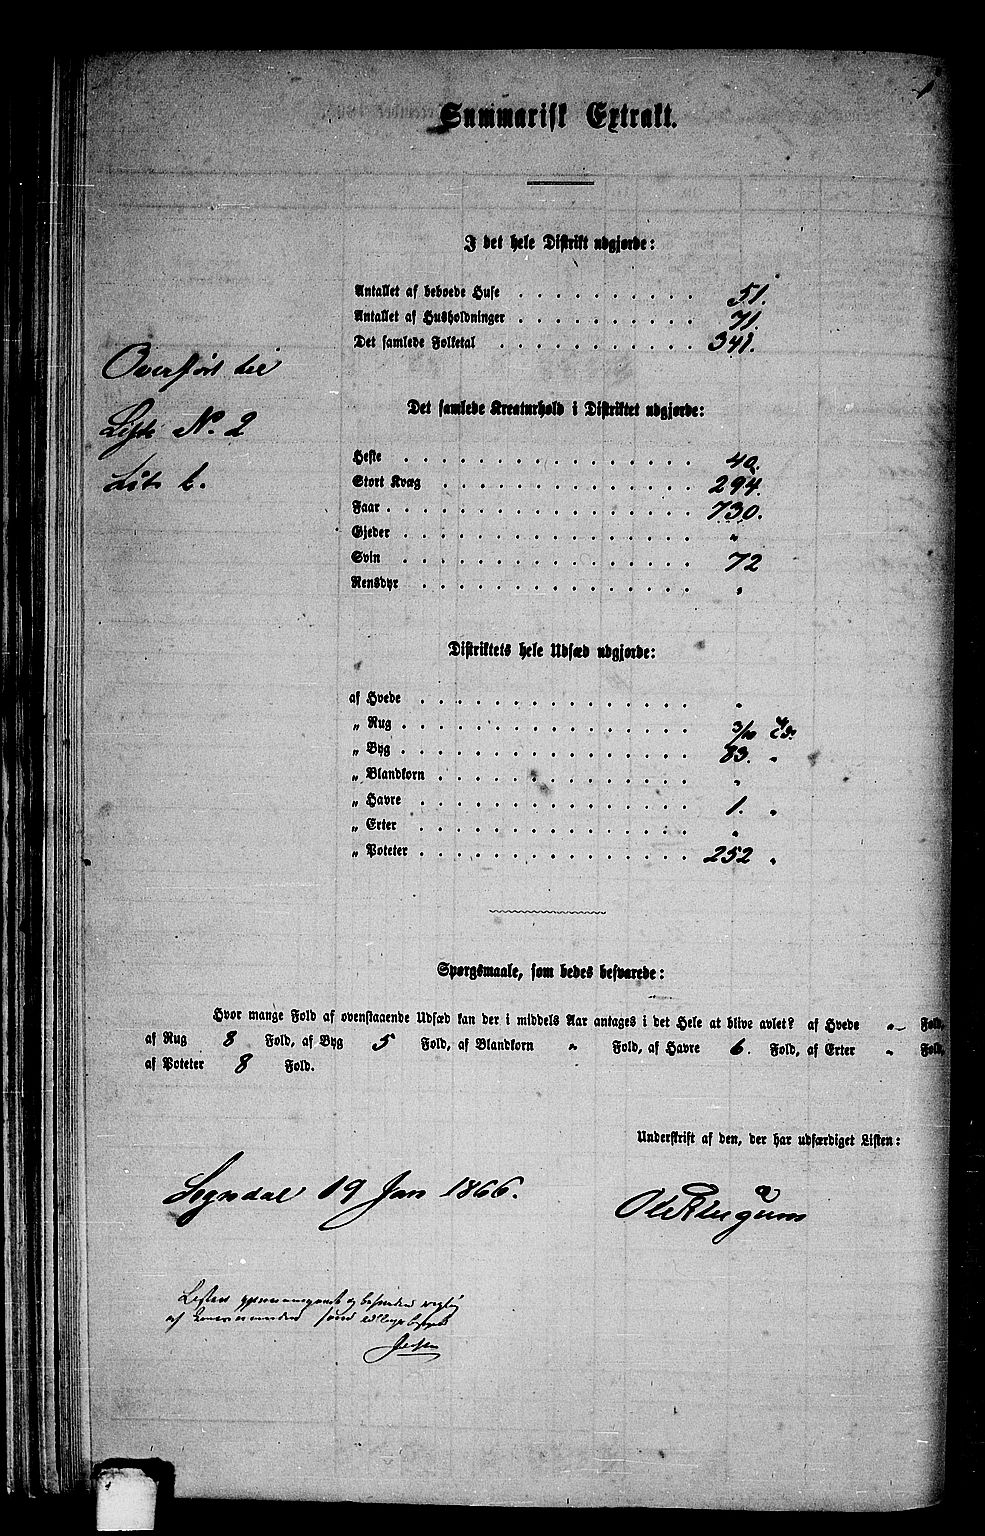 Summarisk Extrakt.
I det hele Distrikt udgjorde:
Antallet af beboede Huse 51.
Antallet af Husholdninger 71.
Det samlede Folketal 341.
Overført til
Liste No. 2
Lit. b.
Det samlede Kreaturhold i Distriktet udgjorde:
Heste 40.
Stort Kvæg 294.
Faar 730.
Gjeder "
Svin 72
Rensdyr "
Distriktets hele Udsæd udgjorde:
af Hvede "
„ Rug 3/10 Td.
„ Byg 83. "
„ Blandkorn "
„ Havre 1. "
„ Erter "
„ Poteter 252 "
Spørgsmaale, som bedes besvarede:
Hvor mange Fold af ovenstaaende Udsæd kan der i middels Aar antages i det Hele at blive avlet? af Hvede " Fold,
af Rug 8 Fold, af Byg 5 Fold, af Blandkorn " Fold, af Havre 6. Fold, af Erter " Fold,
af Poteter 8 Fold.
Underskrift af den, der har udfærdiget Listen:
Sogndal 19 Jan 1866.
Listen gjennemgaaet og befunden rigtig
af Lensmanden